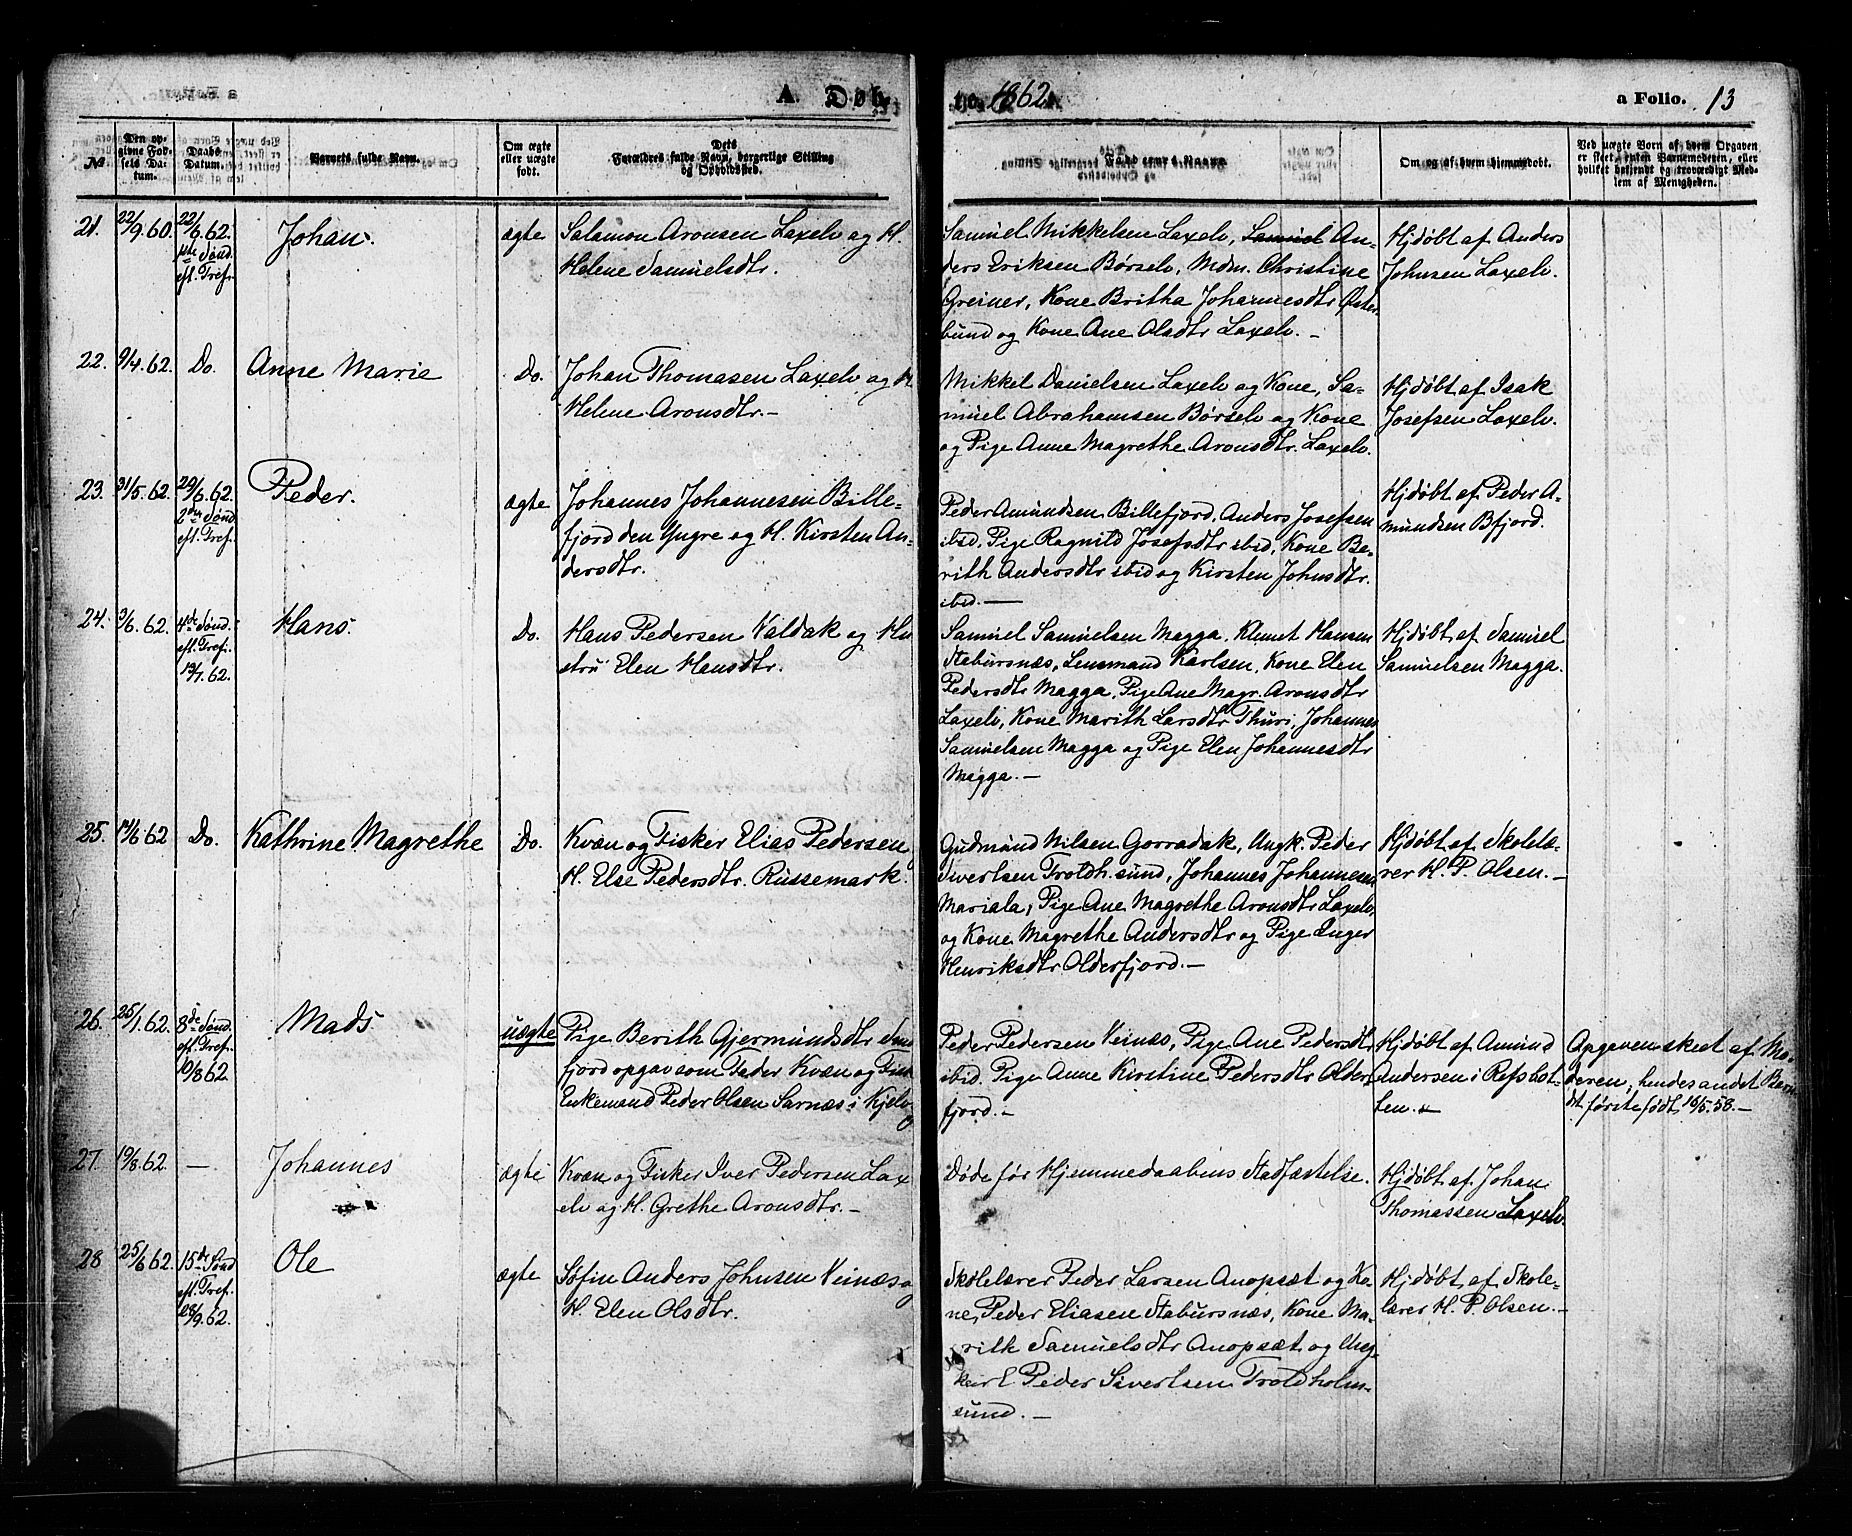 A. Døb-
te. 1862.
a Folio. 13
№
Den op-
givne Fød-
sels Da-
tum.
Daabs
Datum.
Barnets fulde Navn.
Om ægte
eller uægte
født.
Dets
Forældres fulde Navn, borgerlige Stilling
og Opholdssted.
Faddernes Navne
Om og af hvem hjemmedøbt.
Ved uægte Børn af hvem Opgaven
er skeet, enten Barnemoderen, eller
hvilket besjendt og troværdigt Med-
lem af Menigheden.
21. 22/9.60. 22/6.62. Johan. ægte
1ste Sønd.
eft. Tref.
Salamon Aronsen Laxelv og H.
Helene Samuelsdtr.
Samuel Mikkelsen Laxelv, Samuel An-
ders Eriksen Børselv, Mdm. Christine
Greiner, Kone Britha Johannesdtr Øster
bund og Kone Ane Olsdtr Laxelv. –
Hjdøbt af Anders
Johnsen Laxelv.
22. 9/4.62. Do. Anne Marie Do.
Johan Thomasen Laxelv og H.
Helene Aronsdtr. –
Mikkel Danielsen Laxelv og Kone, Sa-
muel Abrahamsen Børselv og Kone
og Pige Anne Magrethe Aronsdtr. Laxelv.
Hjdøbt af Isak
Josefsen Laxelv.
23. 31/5.62. 29/6.62. Peder. ægte
2den Sønd.
eft. Tref.
Johannes Johannesen Bille-
fjord den Yngre og H. Kirsten An-
dersdtr.
Peder Amundsen Billefjord, Anders Josefsen
ibid. Pige Ragnild Josefsdtr ibid, Kone Be-
rith Andersdtr ibid og Kirsten Johnsdtr.
ibid. –
Hjdøbt af Peder A-
mundsen Bfjord.
24. 3/6.62. 4de Sønd. Hans. Do.
eft. Tref.
13/7.62.
Hans Pedersen Valdak og Hu
stru Elen Hansdtr.
Samuel Samuelsen Magga, Klemet Hansen
Stabursnæs, Lensmand Karlsen, Kone Elen
Pedersdtr Magga, Pige Ane Magr. Aronsdtr
Laxelv, Kone Marith Larsdtr Thuri, Johannes
Samuelsen Magga og Pige Elen Johannesdtr
Magga. –
Hjdøbt af Samuel
Samuelsen Magga.
25. 14/6.62 Do. Kathrine Magrethe Do.
Kvæn og Fisker Elias Pedersen
H. Else Pedersdtr. Russemark.
Gudmund Nilsen Gorradak, Ungk. Peder
Sivertsen Troldh.sund, Johannes Johannesen
Mariala, Pige Ane Magrethe Aronsdtr Laxelv,
og Kone Magrethe Andersdtr og Pige Inger
Henriksdtr Olderfjord. –
Hjdøbt af Skolelæ-
rer H. P. Olsen. –
26. 25/1.62. 8de Sønd. Mads uægte
eft. Tref.
10/8 62.
Pige Berith Gjermundsdtr
fjord opgav som Fader Kvæn og
Enkemand Peder Olsen Sarnæs i Kjelv
Peder Pedersen Veinæs, Pige Ane Pedersdtr
ibid. Pige Anne Kirstine Pedersdtr Older
fjord. –
Hjdøbt af Amund
Andersen i Refsbot-
ten. –
Opgaven skeet af Mo-
deren; hendes andet Barn
dt. første født 16/5.58. –
27. 19/8.62. — Johannes ægte
Kvæn og Fisker Iver Pedersen Lax
elv og H. Grethe Aronsdtr. –
Døde før Hjemmedaabens Stadfæstelse.
Hjdøbt af Johan
Thomassen Laxelv.
28 25/6 62. 15de Sønd Ole ægte
eft. Tref.
28/9.62.
Søfin Anders Johnsen Veinæs o
H. Elen Olsdtr.
Skolelærer Peder Larsen Anopsæt og Ko-
ne, Peder Eliasen Stabursnæs, Kone Ma-
rith Samuelsdtr Anopsæt og Ung-
karl Peder Sivertsen Troldholm-
sund. –
Hjdøbt af Skole-
lærer H. P. Olsen. –